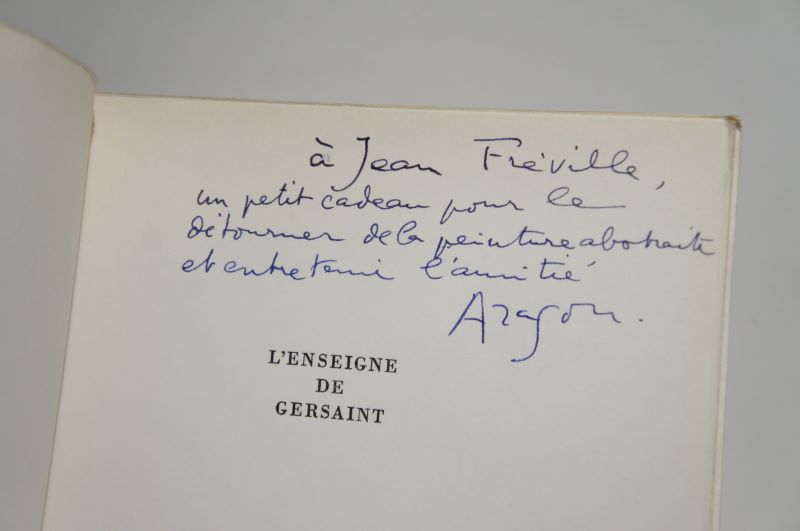 à Jean Fréville,
un petit cadeau pour le
détourner de la peinture abstraite
et entretenir l'amitié
Aragon.
L'ENSEIGNE
DE
GERSAINT